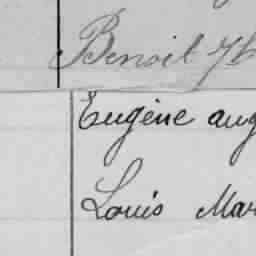 Benoit
Eugène aug
Louis Mar